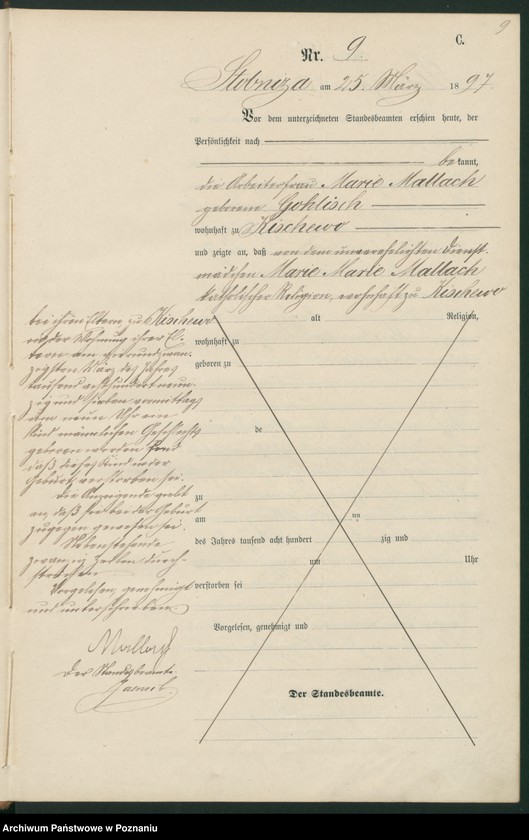 9
C.
Nr. 9.
Stobnica am 25. März 1897
Vor dem unterzeichneten Standesbeamten erschien heute, der
Persönlichkeit nach
bekannt,
die Arbeiterfrau Marie Mallach
geborene Gohlisch
wohnhaft zu Kischewo
und zeigte an, daß von dem unverehelichten Dienst-
mädchen Marie Mallach
katholischer Religion, wohnhaft zu Kischewo
alt Religion,
wohnhaft zu
geboren zu
de
zu
am ten
des Jahres tausend acht hundert zig und
um Uhr
verstorben sei
Vorgelesen, genehmigt und
Der Standesbeamte.
bei ihren Eltern zu Kischewo
in der Wohnung ihrer El-
tern am
zigsten März des Jahres
tausend achthundert neun-
zig und sieben vormittags
um neun Uhr ein
Kind männlichen Geschlechts
geboren worden und
daß dieses Kind in der
Geburt verstorben sei.
Die Anzeigende gibt
an, daß sie bei der Geburt
zugegen gewesen sei.
Nebenstehende
zwanzig Zeilen durch-
strichen
Vorgelesen, genehmigt
und unterschrieben.
Mallach
Der Standesbeamte.
Archiwum Państwowe w Poznaniu